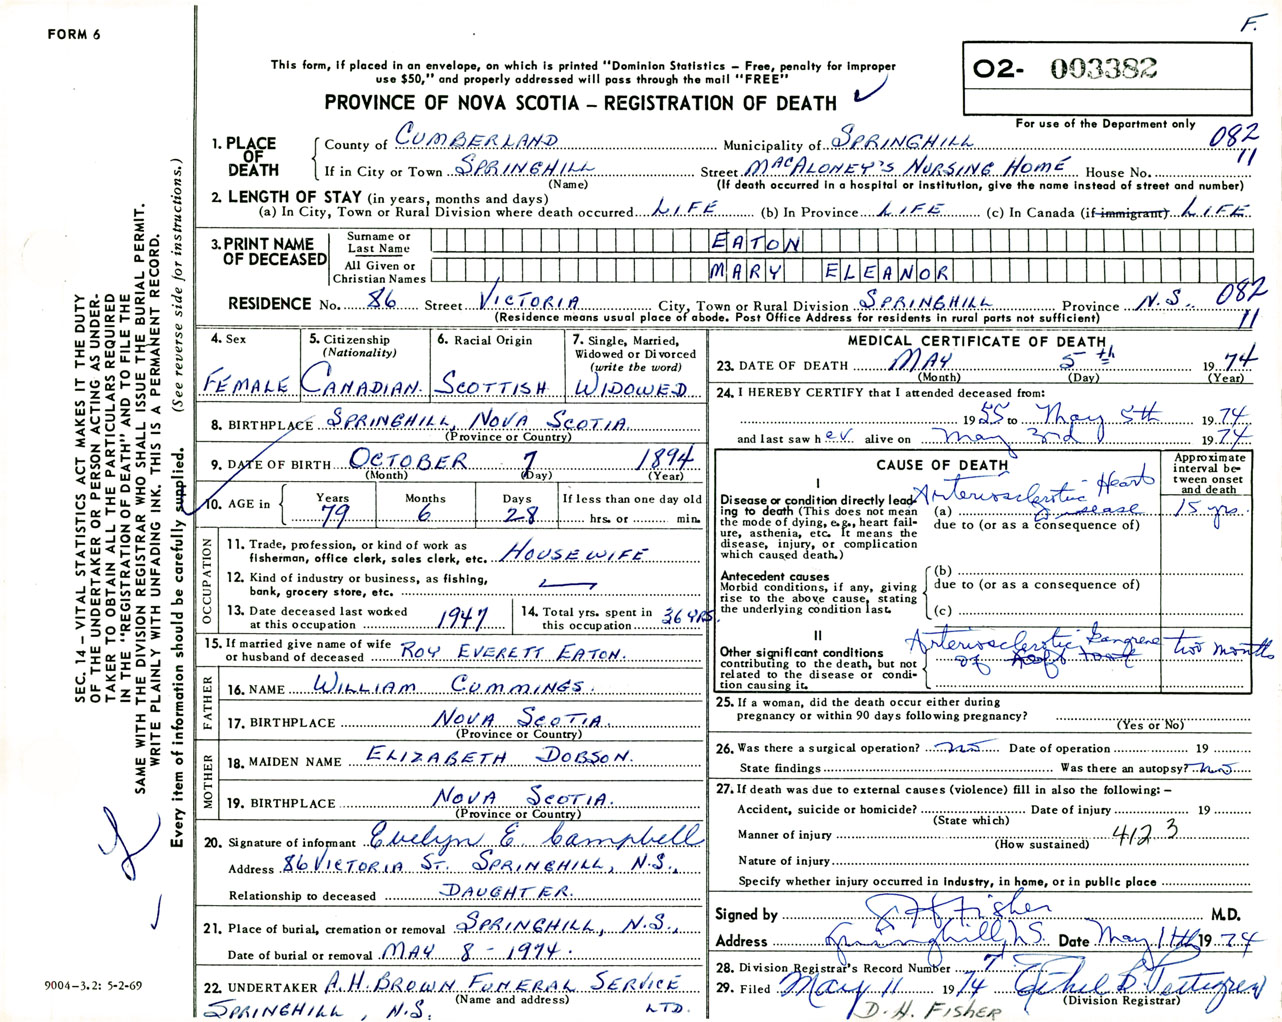 FORM 6
F.
This form, if placed in an envelope, on which is printed "Dominion Statistics – Free, penalty for improper
use $50," and properly addressed will pass through the mail "FREE"
PROVINCE OF NOVA SCOTIA – REGISTRATION OF DEATH
O2- 003382
For use of the Department only
082
11
1. PLACE OF DEATH
County of CUMBERLAND Municipality of SPRINGHILL
If in City or Town SPRINGHILL Street MACALONEY'S NURSING HOME House No.
(Name) (If death occurred in a hospital or institution, give the name instead of street and number)
2. LENGTH OF STAY (in years, months and days)
(a) In City, Town or Rural Division where death occurred LIFE (b) In Province LIFE (c) In Canada (if immigrant) LIFE
3. PRINT NAME OF DECEASED
Surname or Last Name EATON
All Given or Christian Names MARY ELEANOR
RESIDENCE No. 86 Street VICTORIA City, Town or Rural Division SPRINGHILL Province N.S. 082
(Residence means usual place of abode. Post Office Address for residents in rural parts not sufficient) 11
4. Sex FEMALE
5. Citizenship (Nationality) CANADIAN
6. Racial Origin SCOTTISH
7. Single, Married, Widowed or Divorced (write the word) WIDOWED
8. BIRTHPLACE SPRINGHILL, NOVA SCOTIA
(Province or Country)
9. DATE OF BIRTH OCTOBER 7 1894
(Month) (Day) (Year)
10. AGE in Years 79 Months 6 Days 28 If less than one day old
hrs. or min.
OCCUPATION
11. Trade, profession, or kind of work as
fisherman, office clerk, sales clerk, etc. HOUSEWIFE
12. Kind of industry or business, as fishing,
bank, grocery store, etc.
13. Date deceased last worked
at this occupation 1947
14. Total yrs. spent in
this occupation 36 YRS.
15. If married give name of wife
or husband of deceased ROY EVERETT EATON.
FATHER
16. NAME WILLIAM CUMMINGS.
17. BIRTHPLACE NOVA SCOTIA
(Province or Country)
MOTHER
18. MAIDEN NAME ELIZABETH DOBSON.
19. BIRTHPLACE NOVA SCOTIA.
(Province or Country)
20. Signature of informant Evelyn E Campbell
Address 86 VICTORIA ST. SPRINGHILL, N.S.,
Relationship to deceased DAUGHTER.
21. Place of burial, cremation or removal SPRINGHILL, N.S.,
Date of burial or removal MAY 8 - 1974.
22. UNDERTAKER A.H. BROWN FUNERAL SERVICE
(Name and address)
SPRINGHILL, N.S. LTD.
MEDICAL CERTIFICATE OF DEATH
23. DATE OF DEATH MAY 5th 1974
(Month) (Day) (Year)
24. I HEREBY CERTIFY that I attended deceased from:
1955 to May 5th 1974
and last saw her alive on May 3rd 1974
CAUSE OF DEATH
Approximate interval between onset and death
I
Disease or condition directly leading to death (This does not mean the mode of dying, e.g., heart failure, asthenia, etc. It means the disease, injury, or complication which caused death.)
(a) Arteriosclerotic Heart Disease 15 yrs.
due to (or as a consequence of)
Antecedent causes
Morbid conditions, if any, giving rise to the above cause, stating the underlying condition last.
(b)
due to (or as a consequence of)
(c)
II
Other significant conditions contributing to the death, but not related to the disease or condition causing it.
Arteriosclerotic Gangrene two months
of foot
25. If a woman, did the death occur either during
pregnancy or within 90 days following pregnancy?
(Yes or No)
26. Was there a surgical operation? no Date of operation 19
State findings Was there an autopsy? no
27. If death was due to external causes (violence) fill in also the following: –
Accident, suicide or homicide? Date of injury 19
(State which)
Manner of injury 412 3
(How sustained)
Nature of injury
Specify whether injury occurred in industry, in home, or in public place
Signed by Fisher M.D.
Address Springhill, N.S. Date May 11th 1974
28. Division Registrar's Record Number 7
29. Filed May 11 1974 Ethel B. Pettigrew
(Division Registrar)
D. H. FISHER
SEC. 14 – VITAL STATISTICS ACT MAKES IT THE DUTY
OF THE UNDERTAKER OR PERSON ACTING AS UNDER-
TAKER TO OBTAIN ALL THE PARTICULARS REQUIRED
IN THE "REGISTRATION OF DEATH" AND TO FILE THE
SAME WITH THE DIVISION REGISTRAR WHO SHALL ISSUE THE BURIAL PERMIT.
WRITE PLAINLY WITH UNFADING INK. THIS IS A PERMANENT RECORD.
Every item of information should be carefully supplied. (See reverse side for instructions.)
9004-3.2: 5-2-69